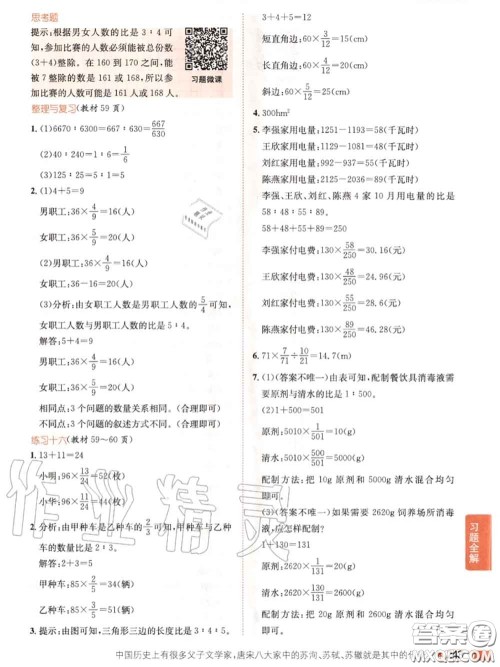 思考题
提示：根据男女人数的比是3∶4可
知,参加比赛的人数必须能被总份数
(3+4)整除。在160到170之间,能
被7整除的数是161或168,所以参
加比赛的人数可能是161人或168人。
习题微课
整理与复习(教材59页)
1. (1)6670∶6300=667∶630=667/630
(2)40∶240=1∶6=1/6
(3)125∶25=5∶1=5
2. (1)4+5=9
男职工:36×4/9=16(人)
女职工:36×5/9=20(人)
(2)男职工:36×4/9=16(人)
女职工:36-16=20(人)
(3)分析:由女职工人数是男职工人数的5/4可知,
女职工人数与男职工人数的比是5∶4。
解答:5+4=9
男职工:36×4/9=16(人)
女职工:36×5/9=20(人)
相同点:3个问题的数量关系相同。(合理即可)
不同点:3个问题的叙述方式不同。(合理即可)
练习十六(教材59～60页)
1. 13+11=24
小明:96×13/24=52(枚)
小华:96×11/24=44(枚)
2. 分析:由甲种车是乙种车的2/3可知,甲种车与乙种
车的数量比是2∶3。
解答:2+3=5
甲种车:85×2/5=34(辆)
乙种车:85×3/5=51(辆)
3. 提示:由图可知,三角形三边的长度比是3∶4∶5。
3+4+5=12
短直角边:60×3/12=15(cm)
长直角边:60×4/12=20(cm)
斜边:60×5/12=25(cm)
4. 300hm²
5. 李强家用电量:1251-1193=58(千瓦时)
王欣家用电量:1179-1131=48(千瓦时)
刘红家用电量:992-937=55(千瓦时)
陈燕家用电量:2125-2036=89(千瓦时)
李强、王欣、刘红、陈燕4家10月用电量的比是
58∶48∶55∶89。
58+48+55+89=250
李强家付电费:130×58/250=30.16(元)
王欣家付电费:130×48/250=24.96(元)
刘红家付电费:130×55/250=28.6(元)
陈燕家付电费:130×89/250=46.28(元)
6. 71×7/71÷10/21=14.7(m)
7. (1)(答案不唯一)由表可知,配制餐饮具消毒液需
要原剂与清水的比是1∶500。
(2)1+500=501
原剂:5010×1/501=10(g)
清水:5010×500/501=5000(g)
配制方法:把10g原剂和5000g清水混合均匀
即可。
(3)(答案不唯一)如果需要2620g饲养场所消毒
液,应怎样配制?
1+130=131
原剂:2620×1/131=20(g)
清水:2620×130/131=2600(g)
配制方法:把20g原剂和2600g清水混合均匀
即可。
习题全解
作业精灵
中国历史上有很多父子文学家,唐宋八大家中的苏洵、苏轼、苏辙就是其中的